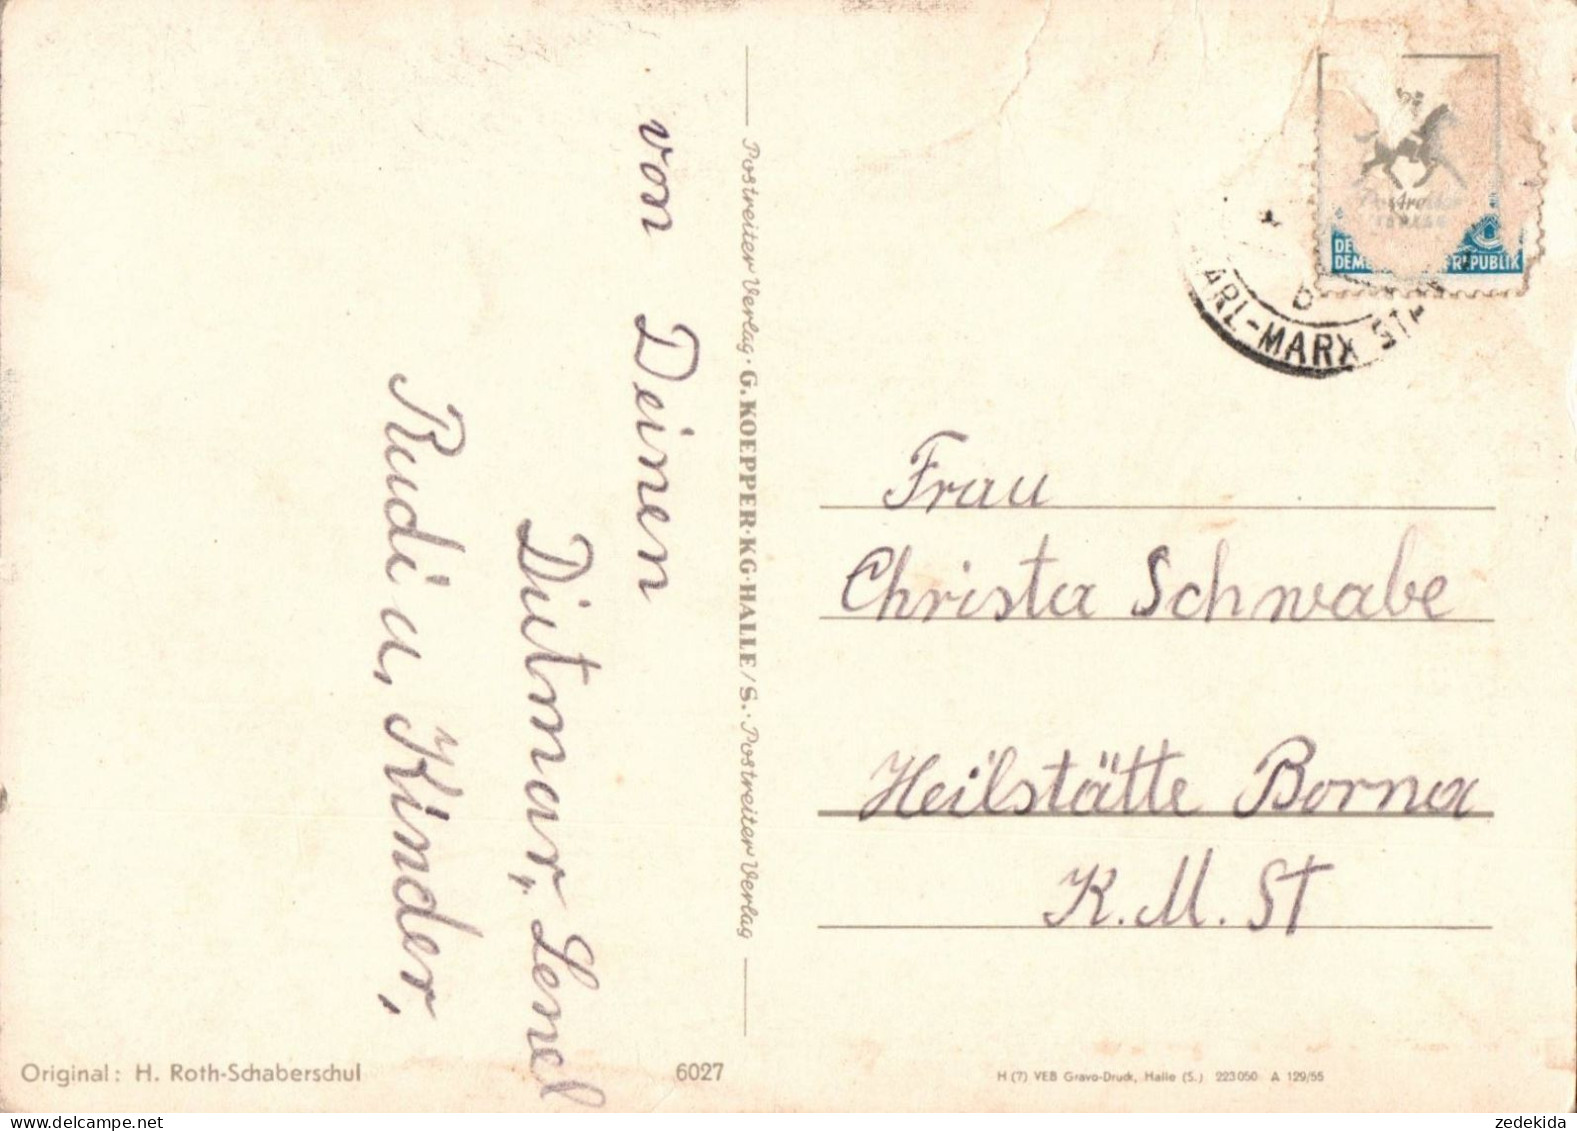 von Deinen
Ditmar, Lenel
Rudi u. Kinder,
Postreiter Verlag · G. KOEPPER·KG·HALLE/S. · Postreiter Verlag
Postreiter
VERLAG
DEMO REPUBLIK
KARL-MARX STA
b
Frau
Christa Schwabe
Heilstätte Borna
K. M. ST
Original: H. Roth-Schaberschul
6027
H (7) VEB Gravo-Druck, Halle (S.) 223050 A 129/55
zedekida